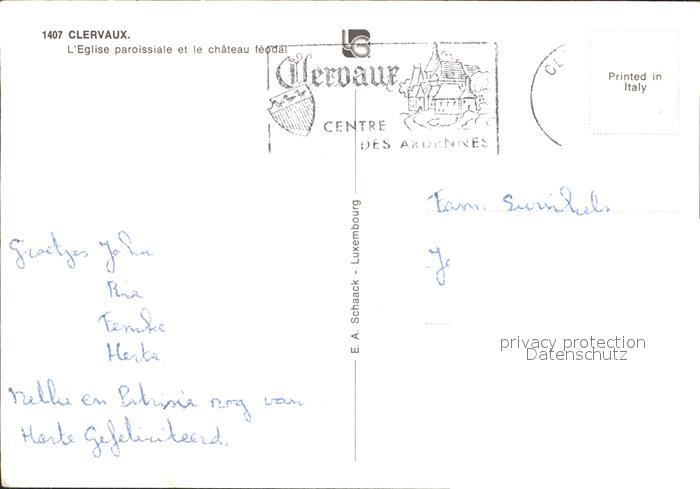 1407 CLERVAUX.
L'Eglise paroissiale et le château féodal
Clervaux
CENTRE
DES ARDENNES
Printed in
Italy
E. A. Schaack - Luxembourg
Fam.
Groetjes John
Ria
Femke
Herta
Nellie en Patricia nog van
Harte Gefeliciteerd.
privacy protection
Datenschutz